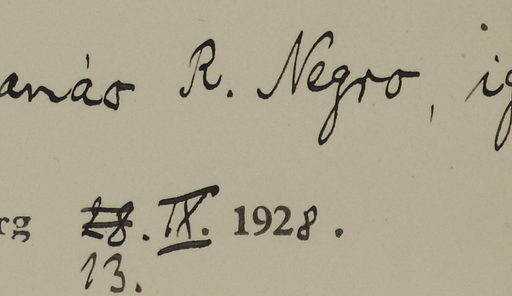 anáo R. Negro, ig
rg 28. IX. 1928.
13.